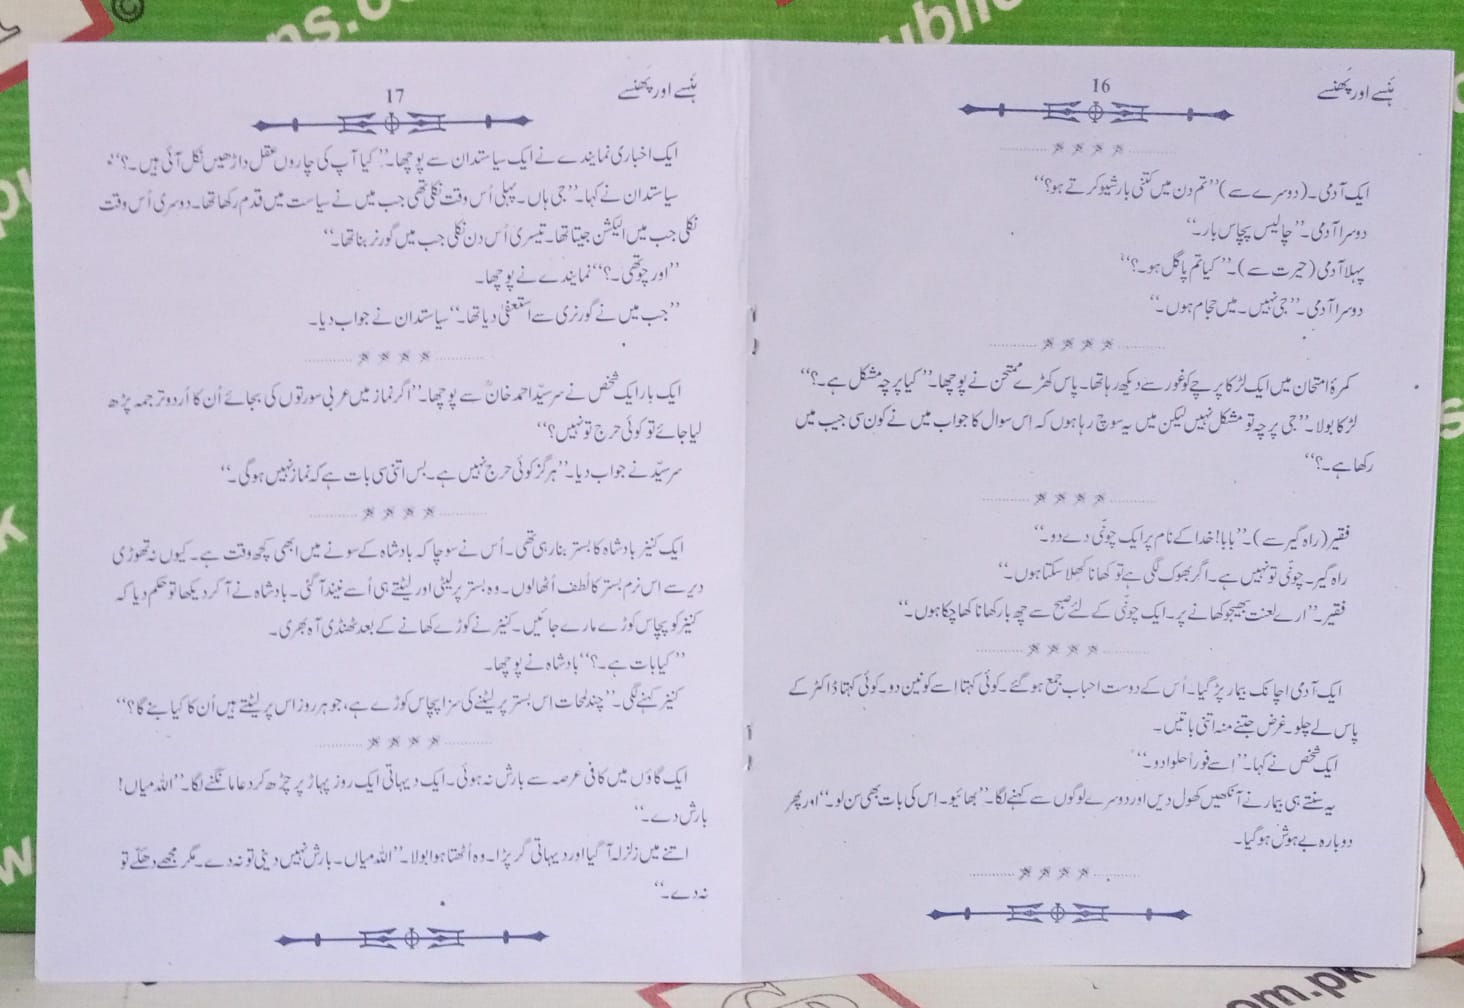 ہنسے اور پھنسے
16
ایک آدمی۔ (دوسرے سے) ”تم دن میں کتنی بار شیو کرتے ہو؟“
دوسرا آدمی۔ ”چالیس پچاس بار۔“
پہلا آدمی (حیرت سے)۔ ”کیا تم پاگل ہو۔؟“
دوسرا آدمی۔ ”جی نہیں۔ میں حجام ہوں۔“
کمرۂ امتحان میں ایک لڑکا پرچے کو غور سے دیکھ رہا تھا۔ پاس کھڑے ممتحن نے پوچھا۔ ”کیا پرچہ مشکل ہے۔؟“
لڑکا بولا۔ ”جی پرچہ تو مشکل نہیں لیکن میں یہ سوچ رہا ہوں کہ اِس سوال کا جواب میں نے کون سی جیب میں
رکھا ہے۔؟“
فقیر (راہ گیر سے)۔ ”بابا! خدا کے نام پر ایک چونّی دے دو۔“
راہ گیر۔ چونّی تو نہیں ہے۔ اگر بھوک لگی ہے تو کھانا کھلا سکتا ہوں۔“
فقیر۔ ”ارے لعنت بھیجو کھانے پر۔ ایک چونّی کے لئے صبح سے چھ بار کھانا کھا چکا ہوں۔“
ایک آدمی اچانک بیمار پڑ گیا۔ اُس کے دوست احباب جمع ہو گئے۔ کوئی کہتا اِسے کونین دو۔ کوئی کہتا ڈاکٹر کے
پاس لے چلو۔ غرض جتنے منہ اتنی باتیں۔
ایک شخص نے کہا۔ ”اِسے فوراً حلوا دو۔“
یہ سنتے ہی بیمار نے آنکھیں کھول دیں اور دوسرے لوگوں سے کہنے لگا۔ ”بھائیو۔ اِس کی بات بھی سن لو۔“ اور پھر
دوبارہ بے ہوش ہو گیا۔
ہنسے اور پھنسے
17
ایک اخباری نمایندے نے ایک سیاستدان سے پوچھا۔ ”کیا آپ کی چاروں عقل داڑھیں نکل آئی ہیں۔؟“
سیاستدان نے کہا۔ ”جی ہاں۔ پہلی اُس وقت نکلی تھی جب میں نے سیاست میں قدم رکھا تھا۔ دوسری اُس وقت
نکلی جب میں الیکشن جیتا تھا۔ تیسری اُس دن نکلی جب میں گورنر بنا تھا۔“
”اور چوتھی۔؟“ نمایندے نے پوچھا۔
”جب میں نے گورنری سے استعفیٰ دیا تھا۔“ سیاستدان نے جواب دیا۔
ایک بار ایک شخص نے سرسیّد احمد خانؒ سے پوچھا۔ ”اگر نماز میں عربی سورتوں کی بجائے اُن کا اُردو ترجمہ پڑھ
لیا جائے تو کوئی حرج تو نہیں؟“
سرسیّد نے جواب دیا۔ ”ہرگز کوئی حرج نہیں ہے۔ بس اتنی سی بات ہے کہ نماز نہیں ہوگی۔“
ایک کنیز بادشاہ کا بستر بنا رہی تھی۔ اُس نے سوچا کہ بادشاہ کے سونے میں ابھی کچھ وقت ہے۔ کیوں نہ تھوڑی
دیر سے اس نرم بستر کا لُطف اُٹھا لوں۔ وہ بستر پر لیٹی اور لیٹتے ہی اُسے نیند آ گئی۔ بادشاہ نے آ کر دیکھا تو حکم دیا کہ
کنیز کو پچاس کوڑے مارے جائیں۔ کنیز نے کوڑے کھانے کے بعد ٹھنڈی آہ بھری۔
”کیا بات ہے۔؟“ بادشاہ نے پوچھا۔
کنیز کہنے لگی۔ ”چند لمحات اِس بستر پر لیٹنے کی سزا پچاس کوڑے ہے، جو ہر روز اس پر لیٹتے ہیں اُن کا کیا بنے گا؟“
ایک گاؤں میں کافی عرصہ سے بارش نہ ہوئی۔ ایک دیہاتی ایک روز پہاڑ پر چڑھ کر دعا مانگنے لگا۔ ”اللہ میاں!
بارش دے۔“
اتنے میں زلزلہ آ گیا اور دیہاتی گر پڑا۔ وہ اُٹھتا ہوا بولا۔ ”اللہ میاں۔ بارش نہیں دینی تو نہ دے۔ مگر مجھے دھکّے تو
نہ دے۔“